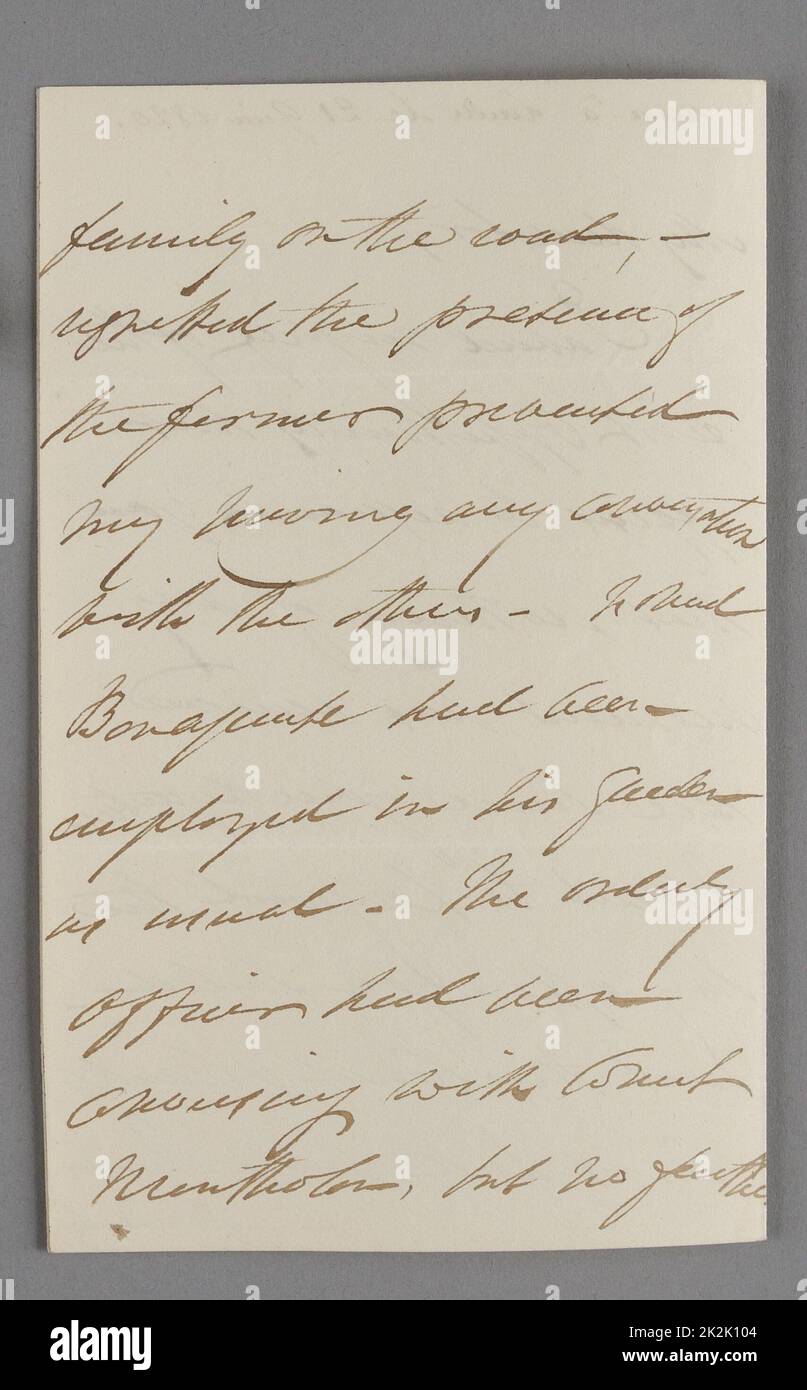 family on the road, –
regretted the presence of
the former prevented
my having any conversation
with the others –
Bonaparte had been
employed in his garden
as usual – The orderly
officer had been
conversing with Count
Montholon, but no further
alamy
Image ID: 2K2K104
www.alamy.com